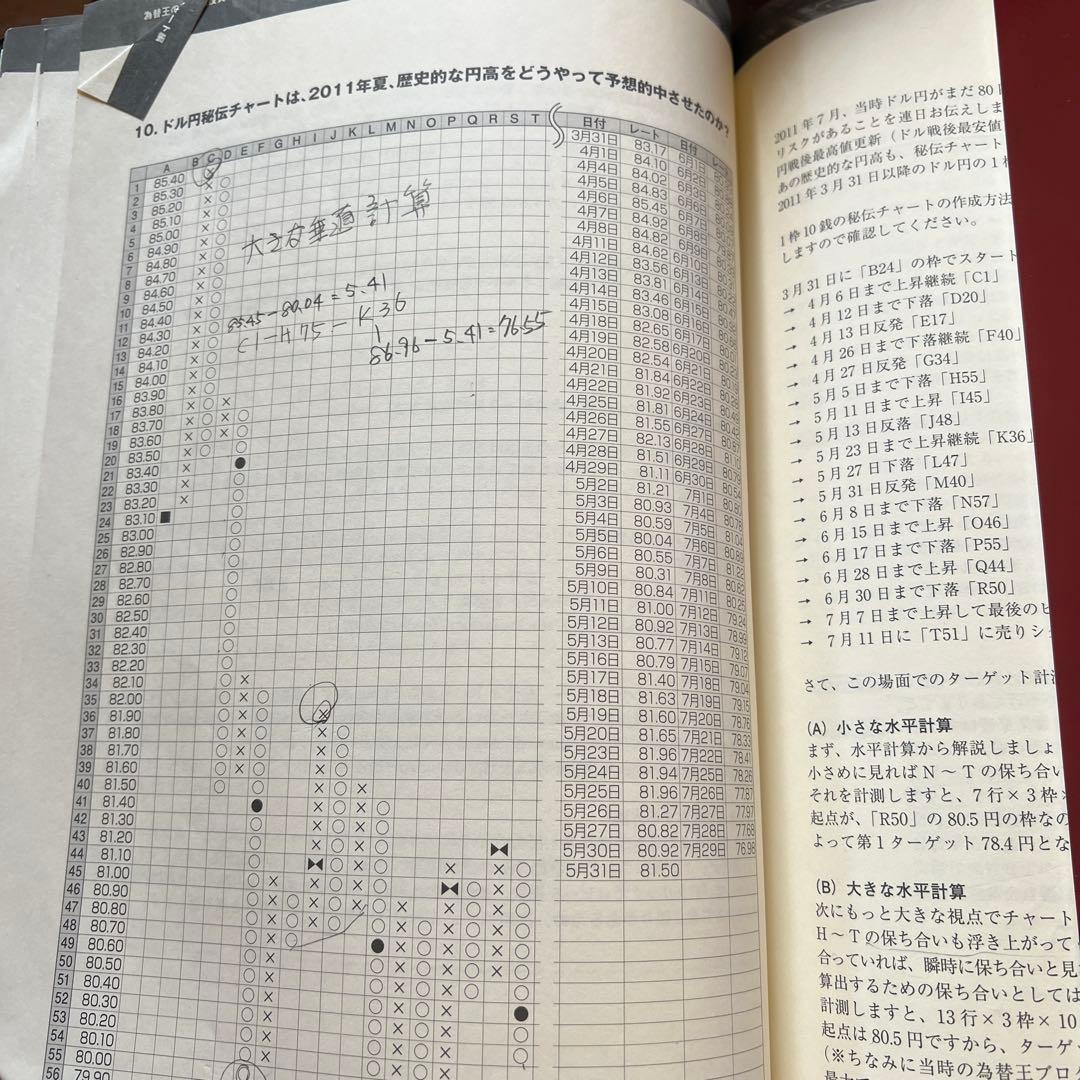 の王替為
10. ドル円秘伝チャートは、2011年夏、歴史的な円高をどうやって予想的中させたのか?
A B C D E F G H I J K L M N O P Q R S T
1 85.40
2 85.30
3 85.20
4 85.10
5 85.00
6 84.90
7 84.80
8 84.70
9 84.60
10 84.50
11 84.40
12 84.30
13 84.20
14 84.10
15 84.00
16 83.90
17 83.80
18 83.70
19 83.60
20 83.50
21 83.40
22 83.30
23 83.20
24 83.10
25 83.00
26 82.90
27 82.80
28 82.70
29 82.60
30 82.50
31 82.40
32 82.30
33 82.20
34 82.10
35 82.00
36 81.90
37 81.80
38 81.70
39 81.60
40 81.50
41 81.40
42 81.30
43 81.20
44 81.10
45 81.00
46 80.90
47 80.80
48 80.70
49 80.60
50 80.50
51 80.40
52 80.30
53 80.20
54 80.10
55 80.00
56 79.90
大きな垂直計算
85.45-80.04=5.41
86.96-5.41=76.55
日付 レート 日付
3月31日 83.17
4月1日 84.10
4月4日 84.02
4月5日 84.83
4月6日 85.45
4月7日 84.92
4月8日 84.82
4月11日 84.62
4月12日 83.56
4月13日 83.81
4月14日 83.46
4月15日 83.08
4月18日 82.65
4月19日 82.58 6月20日
4月20日 82.54 6月21日
4月21日 81.84 6月22日
4月22日 81.92 6月23日
4月25日 81.81 6月24日
4月26日 81.55 6月27日
4月27日 82.13 6月28日
4月28日 81.51 6月29日
4月29日 81.11 6月30日 80.54
5月2日 81.21 7月1日 80.80
5月3日 80.93 7月4日 80.78
5月4日 80.59 7月5日 81.04
5月5日 80.04 7月6日
5月6日 80.55 7月7日 81.22
5月9日 80.31 7月8日 80.62
5月10日 80.84 7月11日 80.25
5月11日 81.00 7月12日 79.24
5月12日 80.92 7月13日 78.99
5月13日 80.77 7月14日 79.12
5月16日 80.79 7月15日 79.07
5月17日 81.40 7月18日 79.04
5月18日 81.63 7月19日 79.15
5月19日 81.60 7月20日 78.76
5月20日 81.65 7月21日 78.33
5月23日 81.96 7月22日 78.41
5月24日 81.94 7月25日 78.26
5月25日 81.96 7月26日 77.87
5月26日 81.27 7月27日 77.97
5月27日 80.82 7月28日 77.68
5月30日 80.92 7月29日 76.98
5月31日 81.50
2011年7月、当時ドル円がまだ80
リスクがあることを連日お伝えしま
円戦後最高値更新(ドル戦後最安値
あの歴史的な円高も、秘伝チャート
2011年3月31日以降のドル円の1
1枠10銭の秘伝チャートの作成方法
しますので確認してください。
3月31日に「B24」の枠でスタート
→ 4月6日まで上昇継続「C1」
→ 4月12日まで下落「D20」
→ 4月13日反発「E17」
→ 4月26日まで下落継続「F40」
→ 4月27日反発「G34」
→ 5月5日まで下落「H55」
→ 5月11日まで上昇「I45」
→ 5月13日反落「J48」
→ 5月23日まで上昇継続「K36」
→ 5月27日下落「L47」
→ 5月31日反発「M40」
→ 6月8日まで下落「N57」
→ 6月15日まで上昇「O46」
→ 6月17日まで下落「P55」
→ 6月28日まで上昇「Q44」
→ 6月30日まで下落「R50」
→ 7月7日まで上昇して最後のヒ
→ 7月11日に「T51」に売りシ
さて、この場面でのターゲット計
(A) 小さな水平計算
まず、水平計算から解説しましょ
小さめに見ればN~Tの保ち合い
それを計測しますと、7行×3枠
起点が、「R50」の80.5円の枠なの
よって第1ターゲット78.4円とな
(B) 大きな水平計算
次にもっと大きな視点でチャート
H~Tの保ち合いも浮き上がって
合っていれば、瞬時に保ち合いと見
算出するための保ち合いとしては
計測しますと、13行×3枠×10
起点は80.5円ですから、ターゲ
(※ちなみに当時の為替王ブロ